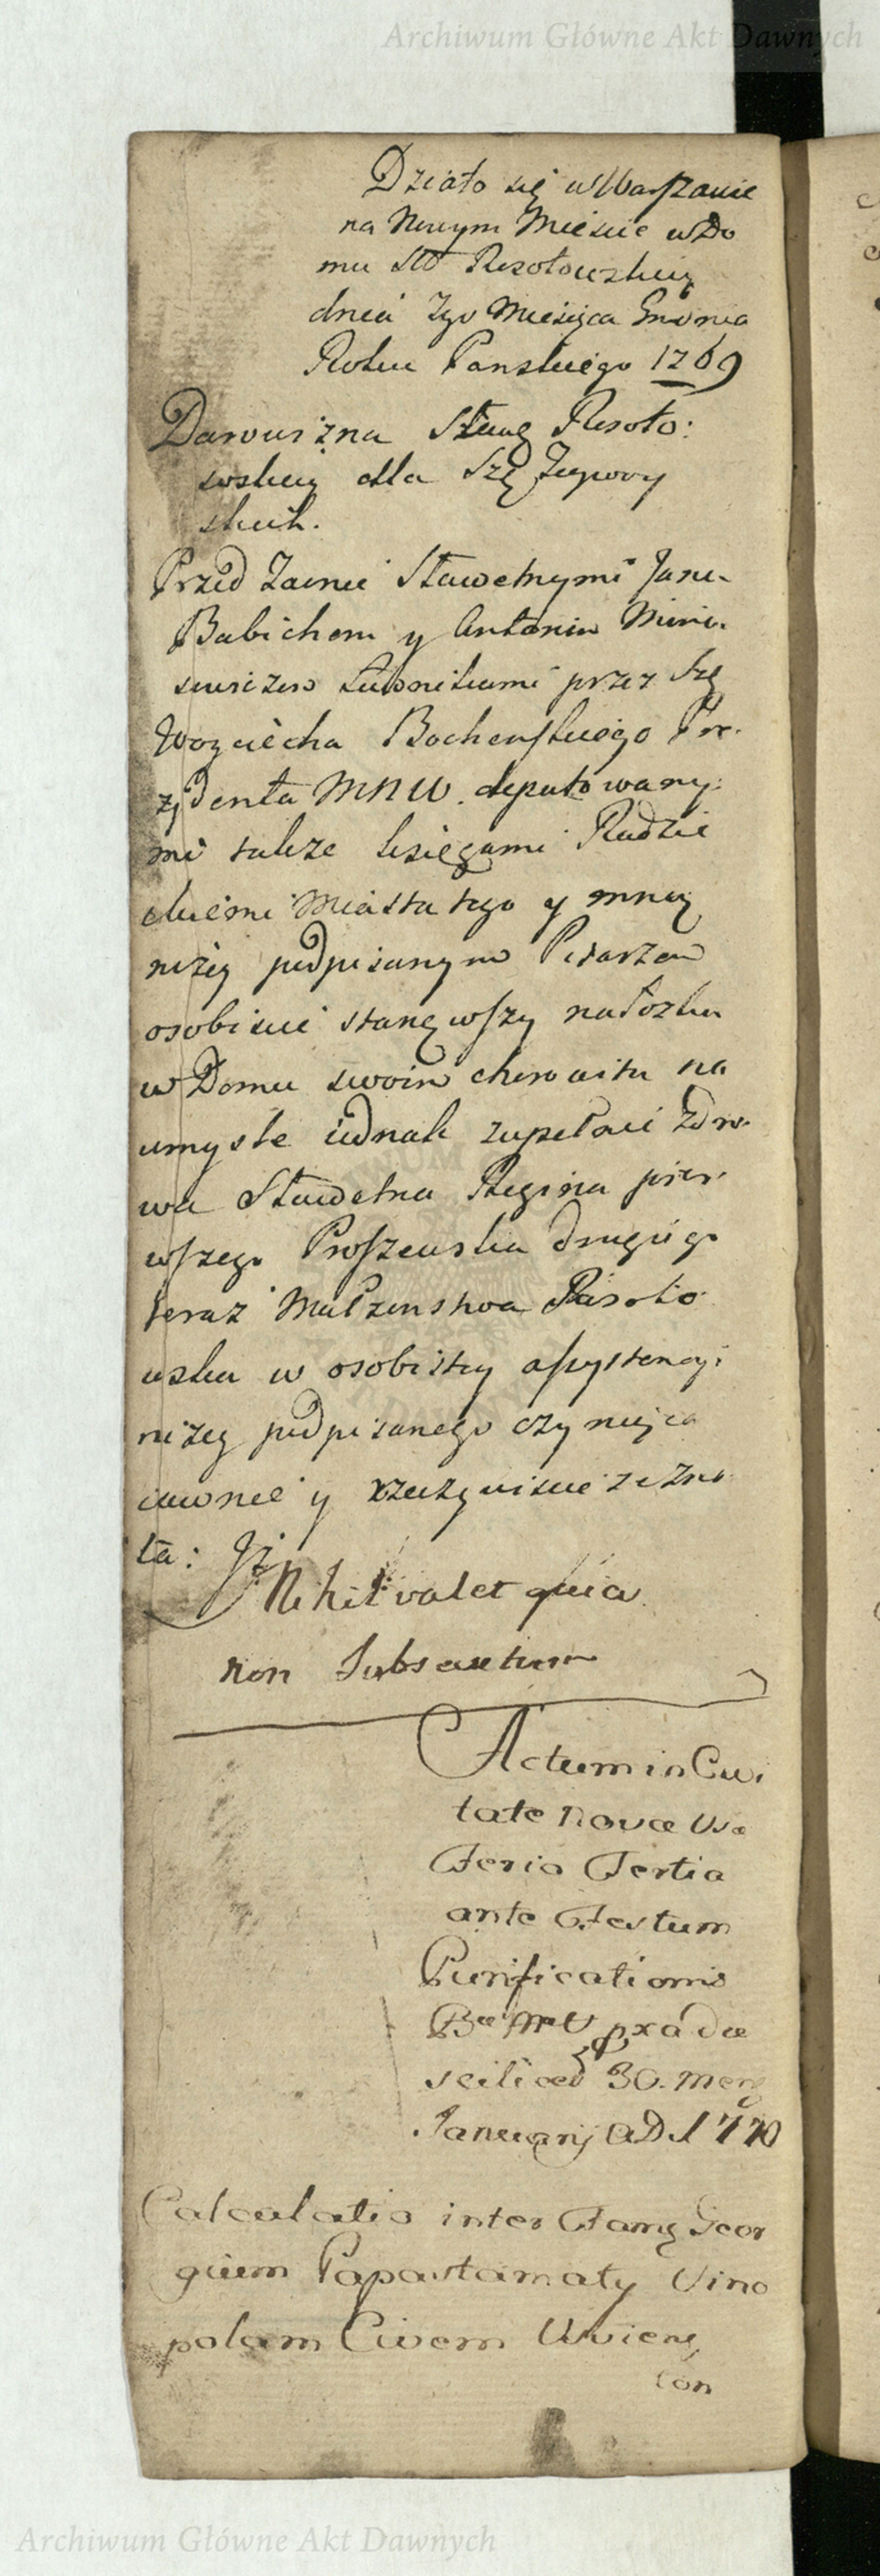 Archiwum Główne Akt Dawnych
Działo się w Warszawie
na Nowym Mieście w Do
mu Stt Rosołowskiey
dnia 7go Miesiąca Grudnia
Roku Panskiego 1769
Darowizna Sławę Rosoło:
wskiey dla Szę
skich.
Przed Zacnie Sławetnymi Jane
Babichem y Antonim
Ławnikami przez Szę
Woyciecha Bochenskiego Pre
zydenta MNW. deputowany:
mi także księgami Radzie
ckiemi Miasta tego y mną
niżey podpisanym Pisarzem
osobiscie stanąwszy na łożku
w Domu swoim chorowita na
umysle iednak zupełnie zdro
wa Sławetna Regina pier
wszego Proszewska drugiego
teraz Małżenstwa Rosoło
wska w osobistey assystencyi
niżey podpisanego czyniąca
iawnie y rzeczywiscie zezna
ła: Iż
Nihil valet quia
non Subsecutum
Actum in Civi
tate Nova Vsa
Feria Tertia
ante Festum
Purificationis
Bae MaeV pxa die
scilicet 30. Mens
Januarij AD 1770
Calculatio inter Famę Geor
gium Papastamaty Vino
polam Civem
con
Archiwum Główne Akt Dawnych